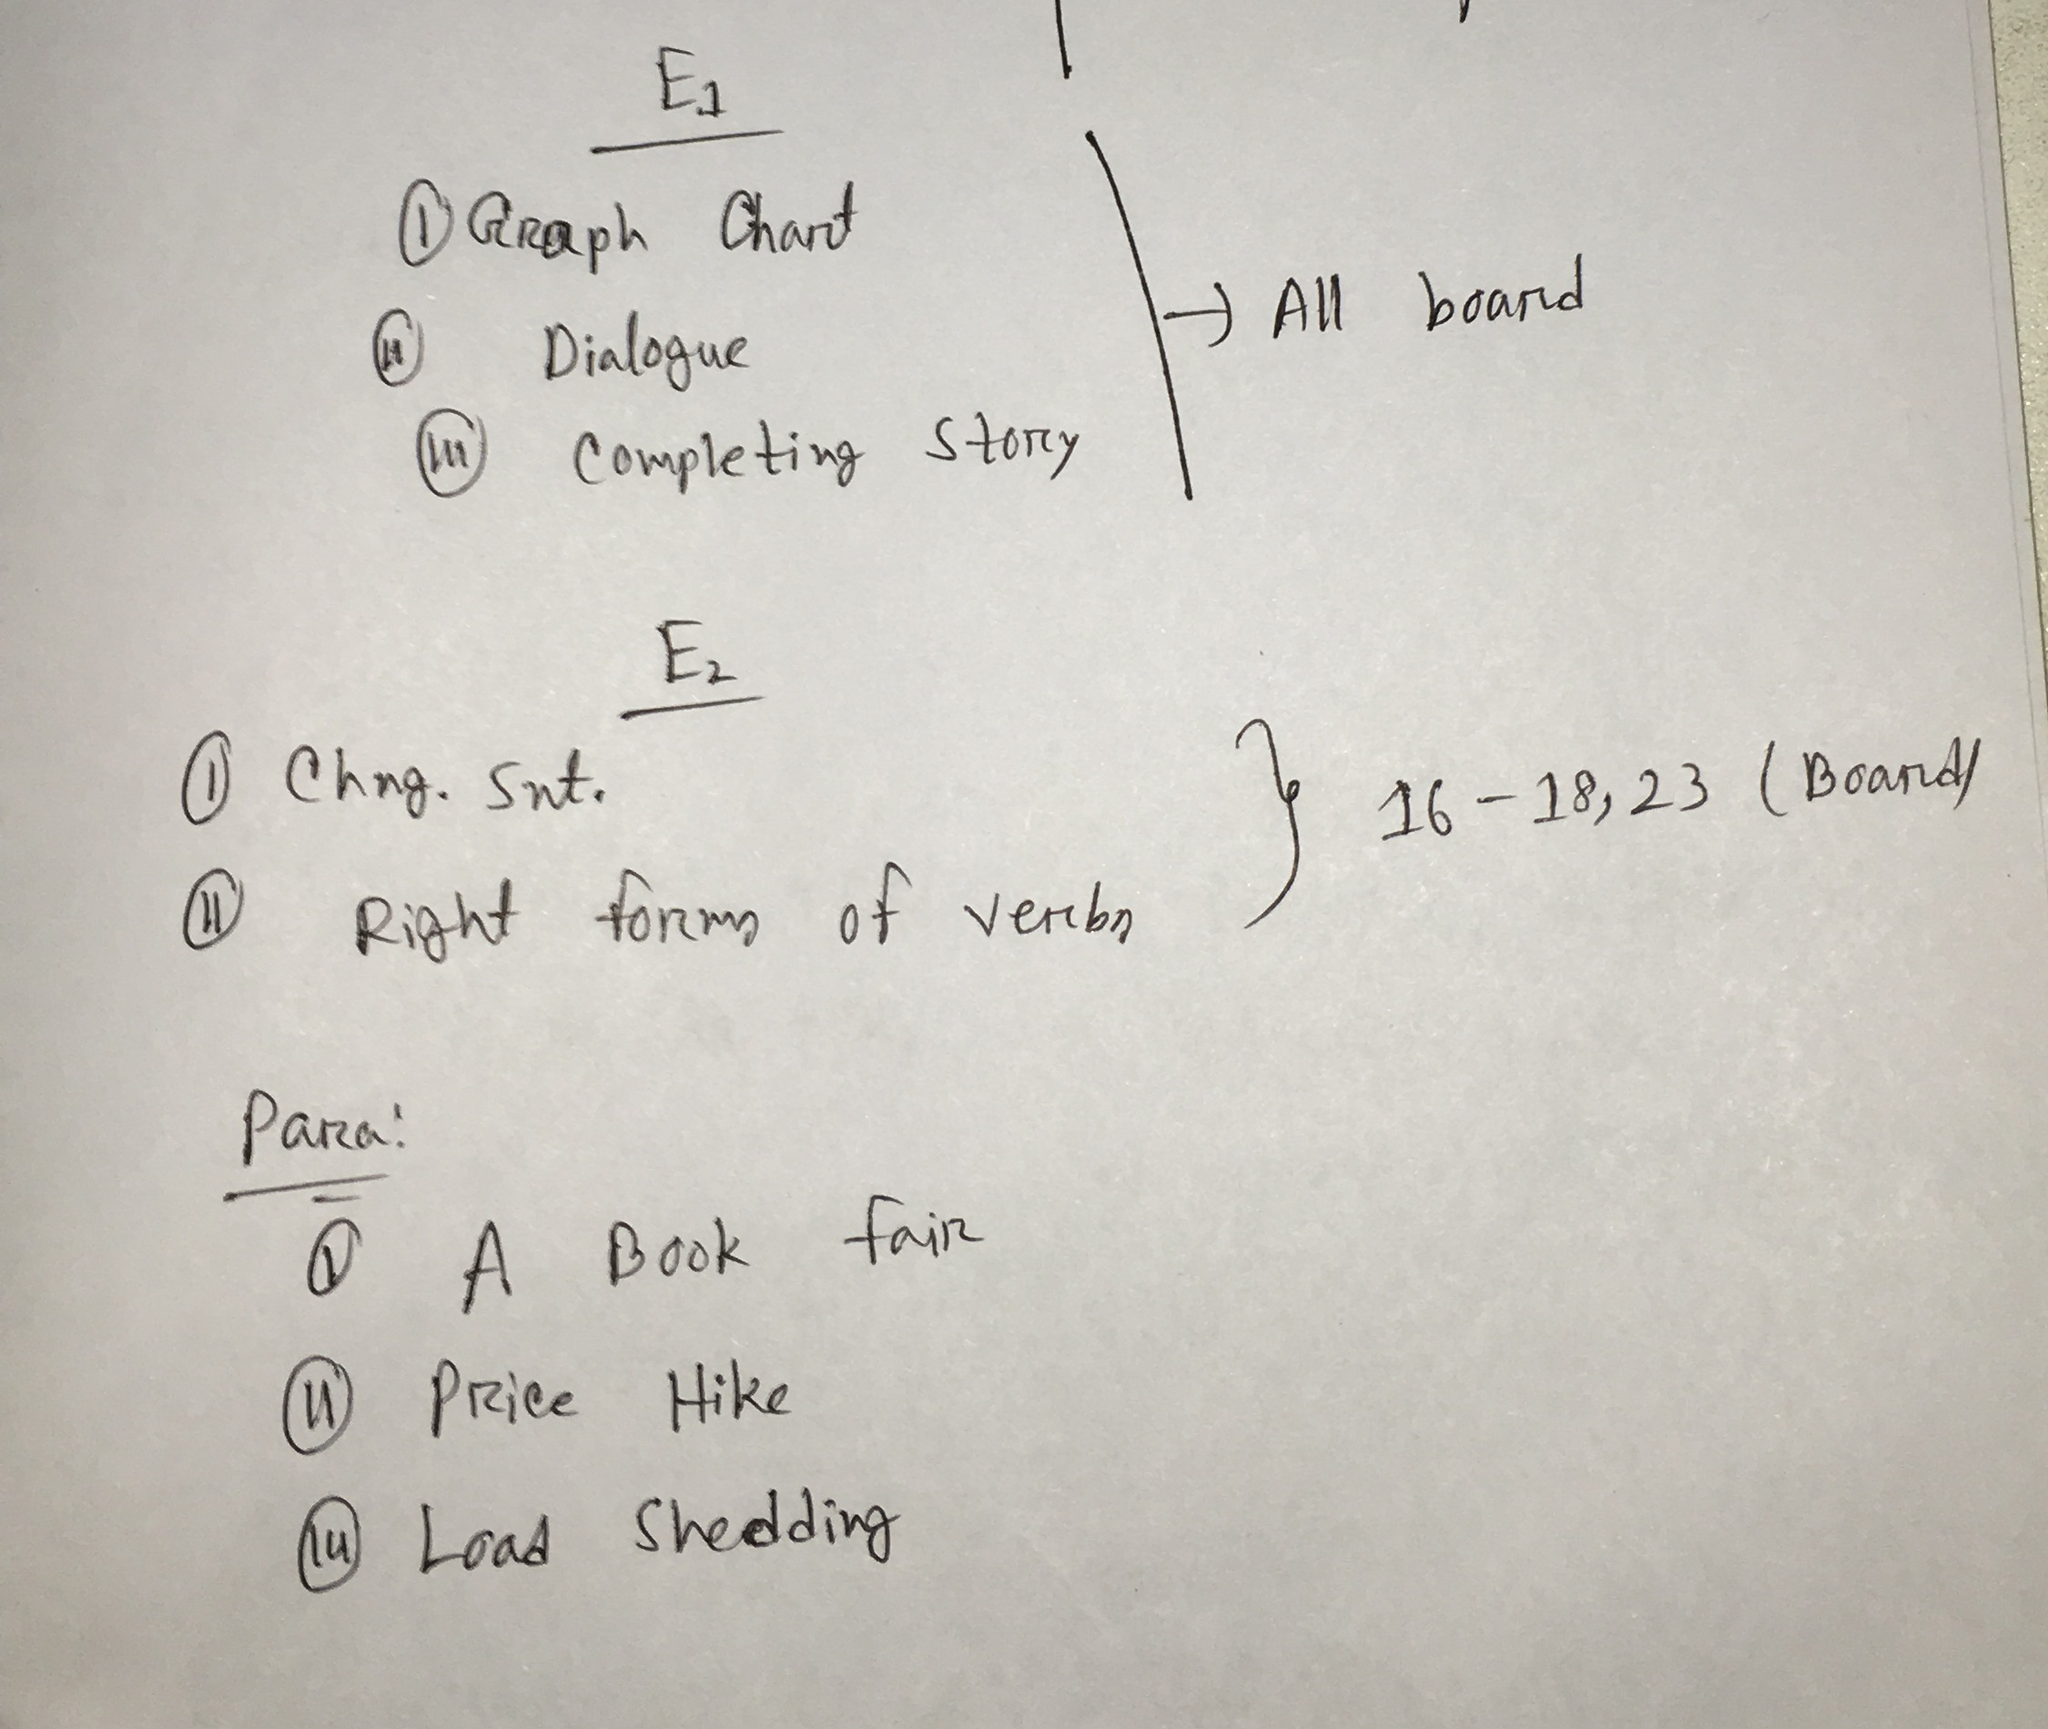 E1
(i) Graph Chart
(ii) Dialogue
(iii) Completing Story
→ All board
E2
(i) Chng. Snt.
(ii) Right forms of verbs
} 16-18, 23 (Board)
Para:
(i) A Book fair
(ii) Price Hike
(iii) Load Shedding